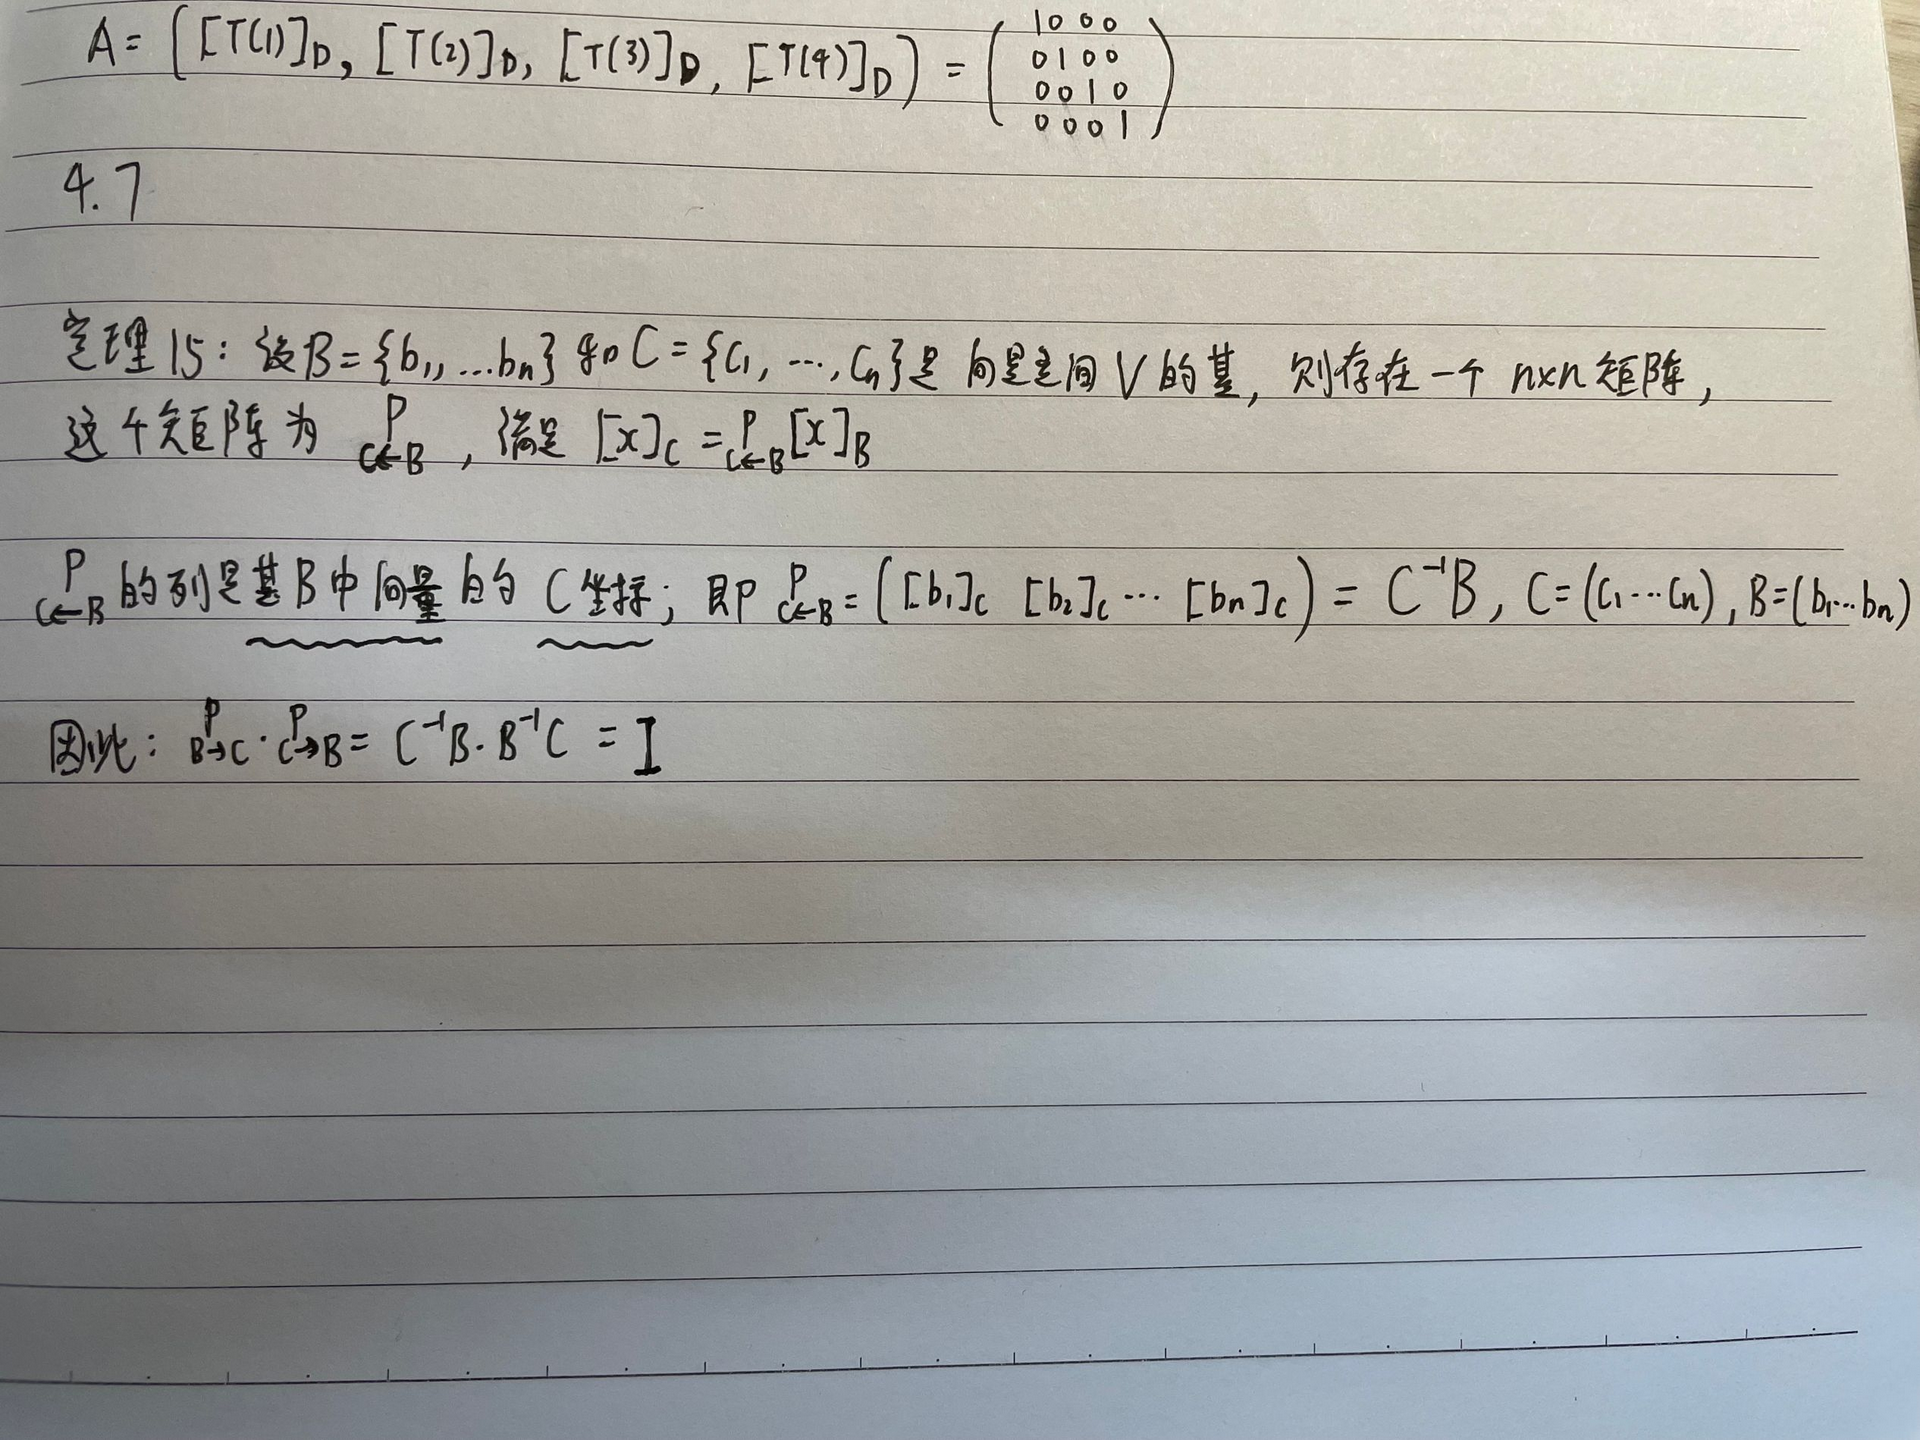 A = ([T(1)]_D, [T(2)]_D, [T(3)]_D, [T(4)]_D) = (1 0 0 0
0 1 0 0
0 0 1 0
0 0 0 1)
4.7
定理15: 设B={b₁,...bₙ}和C={c₁,...,cₙ}是向量空间V的基, 则存在一个n×n矩阵,
这个矩阵为 P_{C←B}, 满足 [x]_C = P_{C←B}[x]_B
P_{C←B} 的列是基B中向量的C坐标; 即 P_{C←B} = ([b₁]_C [b₂]_C ... [bₙ]_C) = C⁻¹B, C=(c₁...cₙ), B=(b₁...bₙ)
因此: P_{B→C} · P_{C→B} = C⁻¹B · B⁻¹C = I